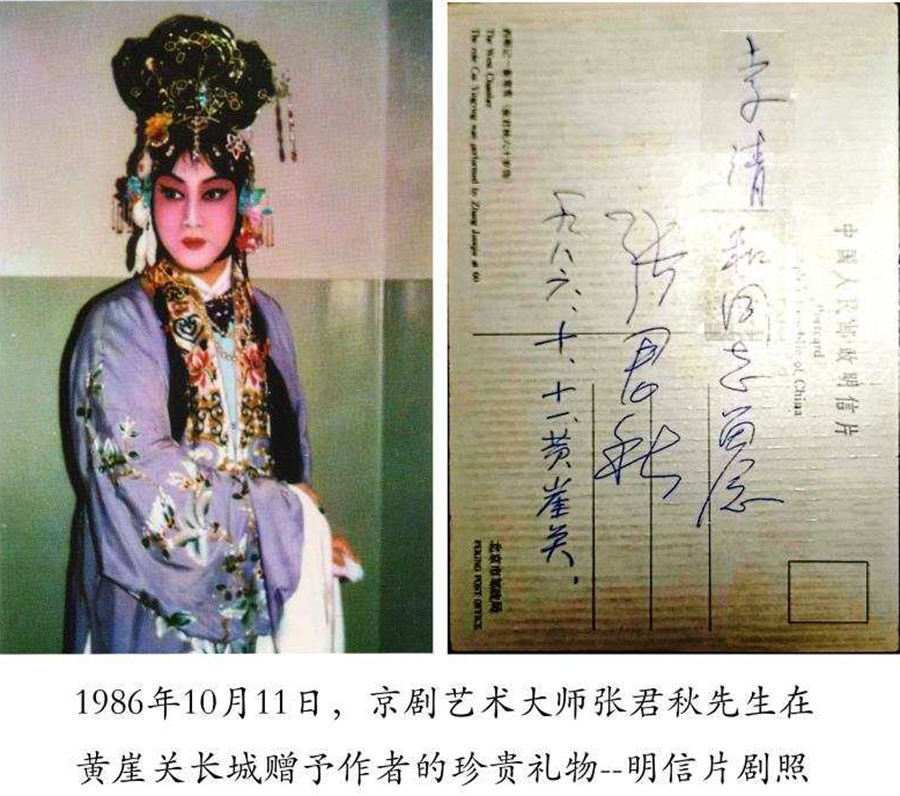 中国人民邮政明信片
Postcard
of China
李清和同志留念
张君秋
一九八六、十、十一黄崖关.
The West Chamber
The role Cui Yingying was performed by Zhang Junqiu at 60
北京市邮政局
PEKING POST OFFICE
1986年10月11日，京剧艺术大师张君秋先生在
黄崖关长城赠予作者的珍贵礼物--明信片剧照